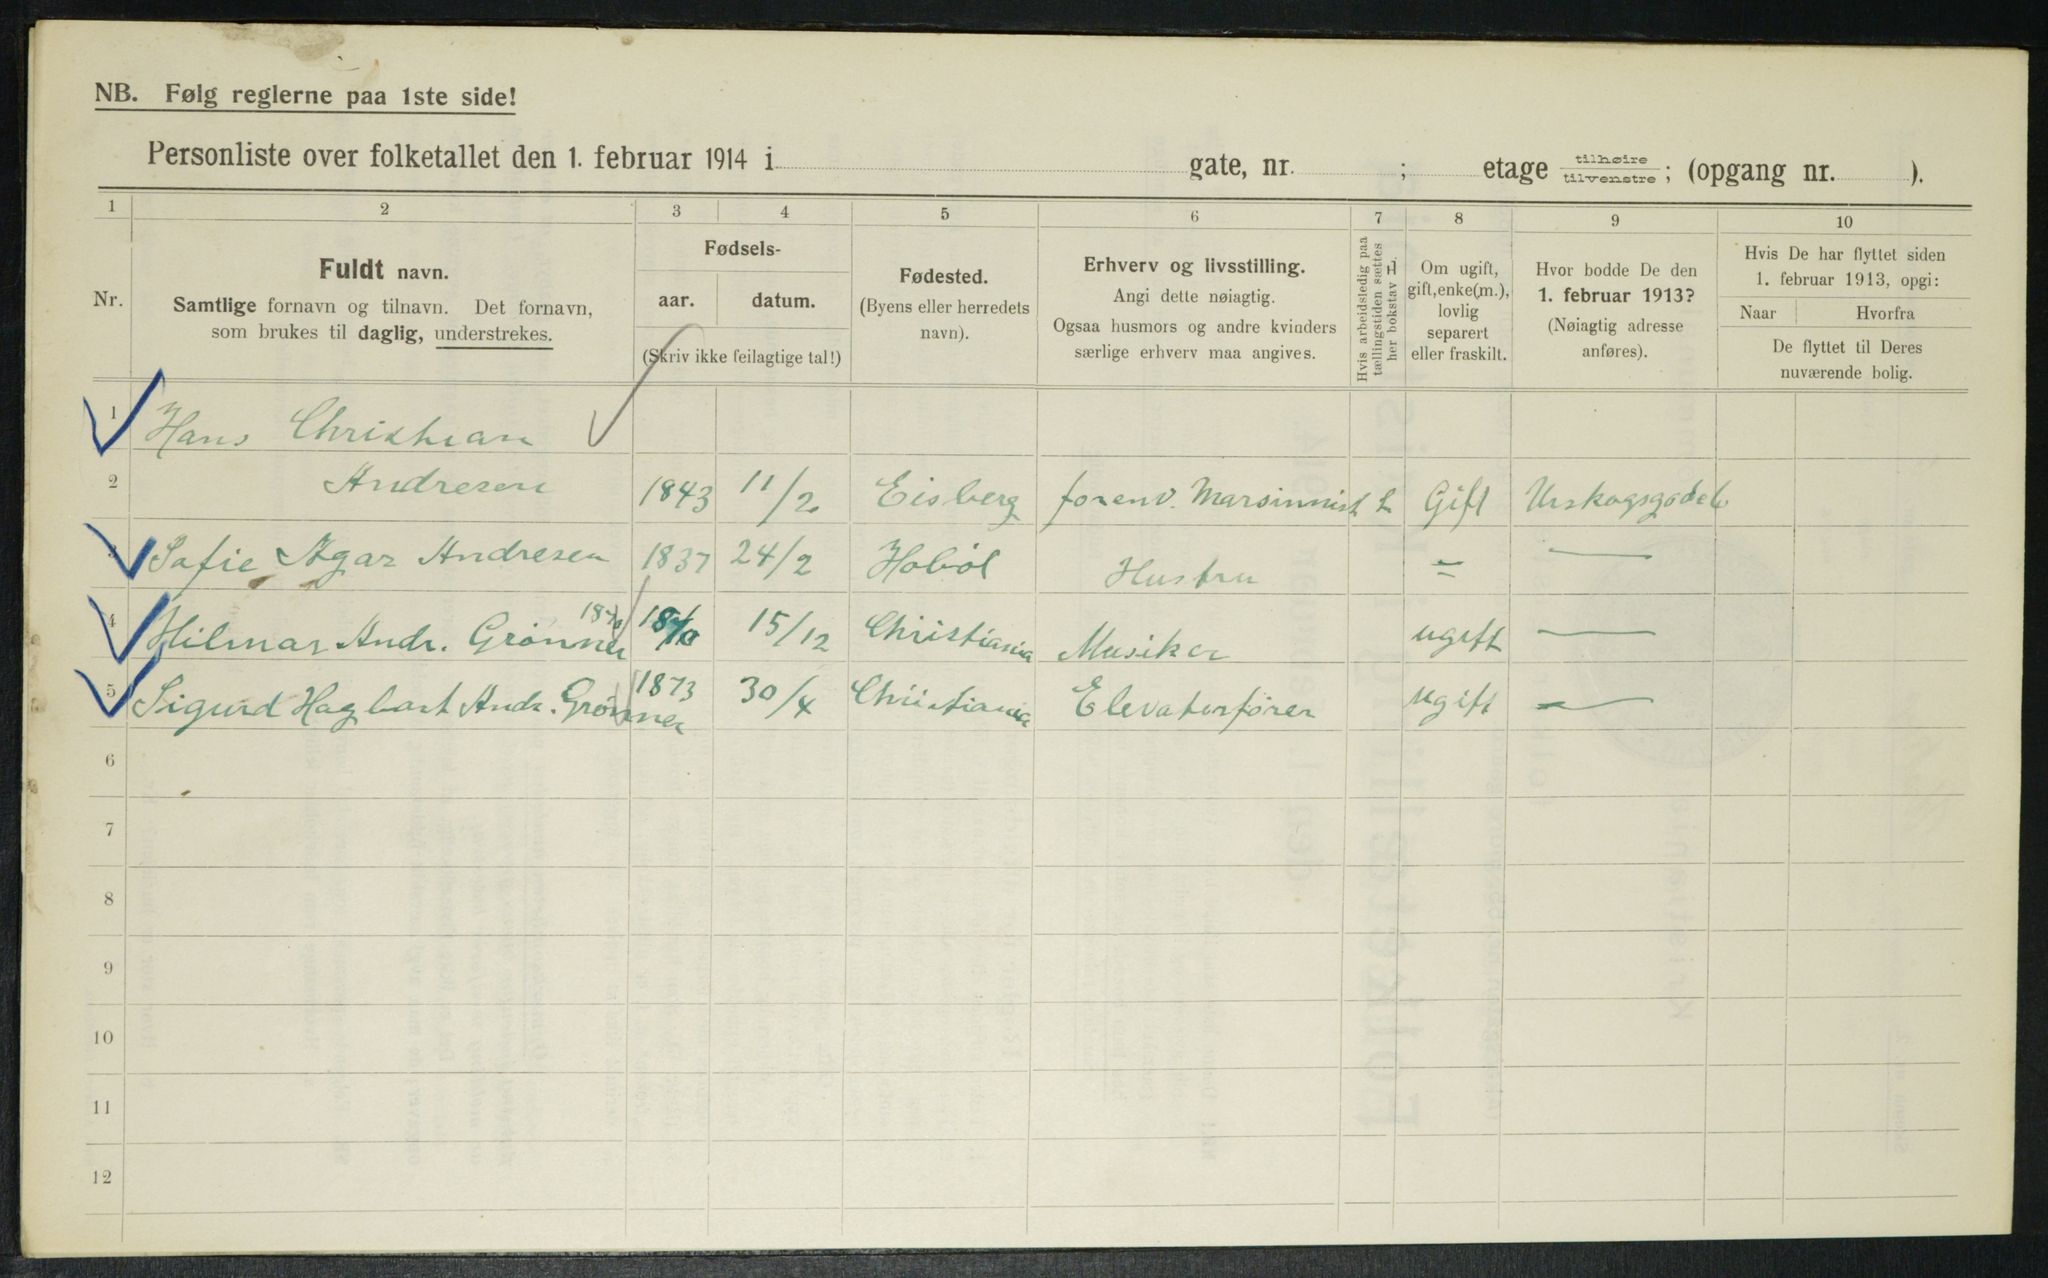 NB. Følg reglerne paa 1ste side!
Personliste over folketallet den 1. februar 1914 i gate, nr. ; etage tilhøire tilvenstre; (opgang nr. ).
1 2 3 4 5 6 7 8 9 10
Nr.
Fuldt navn.
Samtlige fornavn og tilnavn. Det fornavn,
som brukes til daglig, understrekes.
Fødsels-
aar. datum.
(Skriv ikke feilagtige tal!)
Fødested.
(Byens eller herredets
navn).
Erhverv og livsstilling.
Angi dette nøiagtig.
Ogsaa husmors og andre kvinders
særlige erhverv maa angives.
Hvis arbeidsledig paa
tællingstiden sættes
her bokstav L
Om ugift,
gift, enke(m.),
lovlig
separert
eller fraskilt.
Hvor bodde De den
1. februar 1913?
(Nøiagtig adresse
anføres).
Hvis De har flyttet siden
1. februar 1913, opgi:
Naar Hvorfra
De flyttet til Deres
nuværende bolig.
1 Hans Christian
2 Andresen 1843 11/2 Eisberg forenv. Marsinnist L Gift Urskogsgadeb
3 Safie Agar Andresen 1837 24/2 Hobøl Hustru = —
4 Hilmar Andr. Grønner 1870 1870 15/12 Christiania Musiker ugift —
5 Sigurd Hagbart Andr. Grønner 1873 30/4 Christiania Elevatorfører ugift —
6
7
8
9
10
11
12